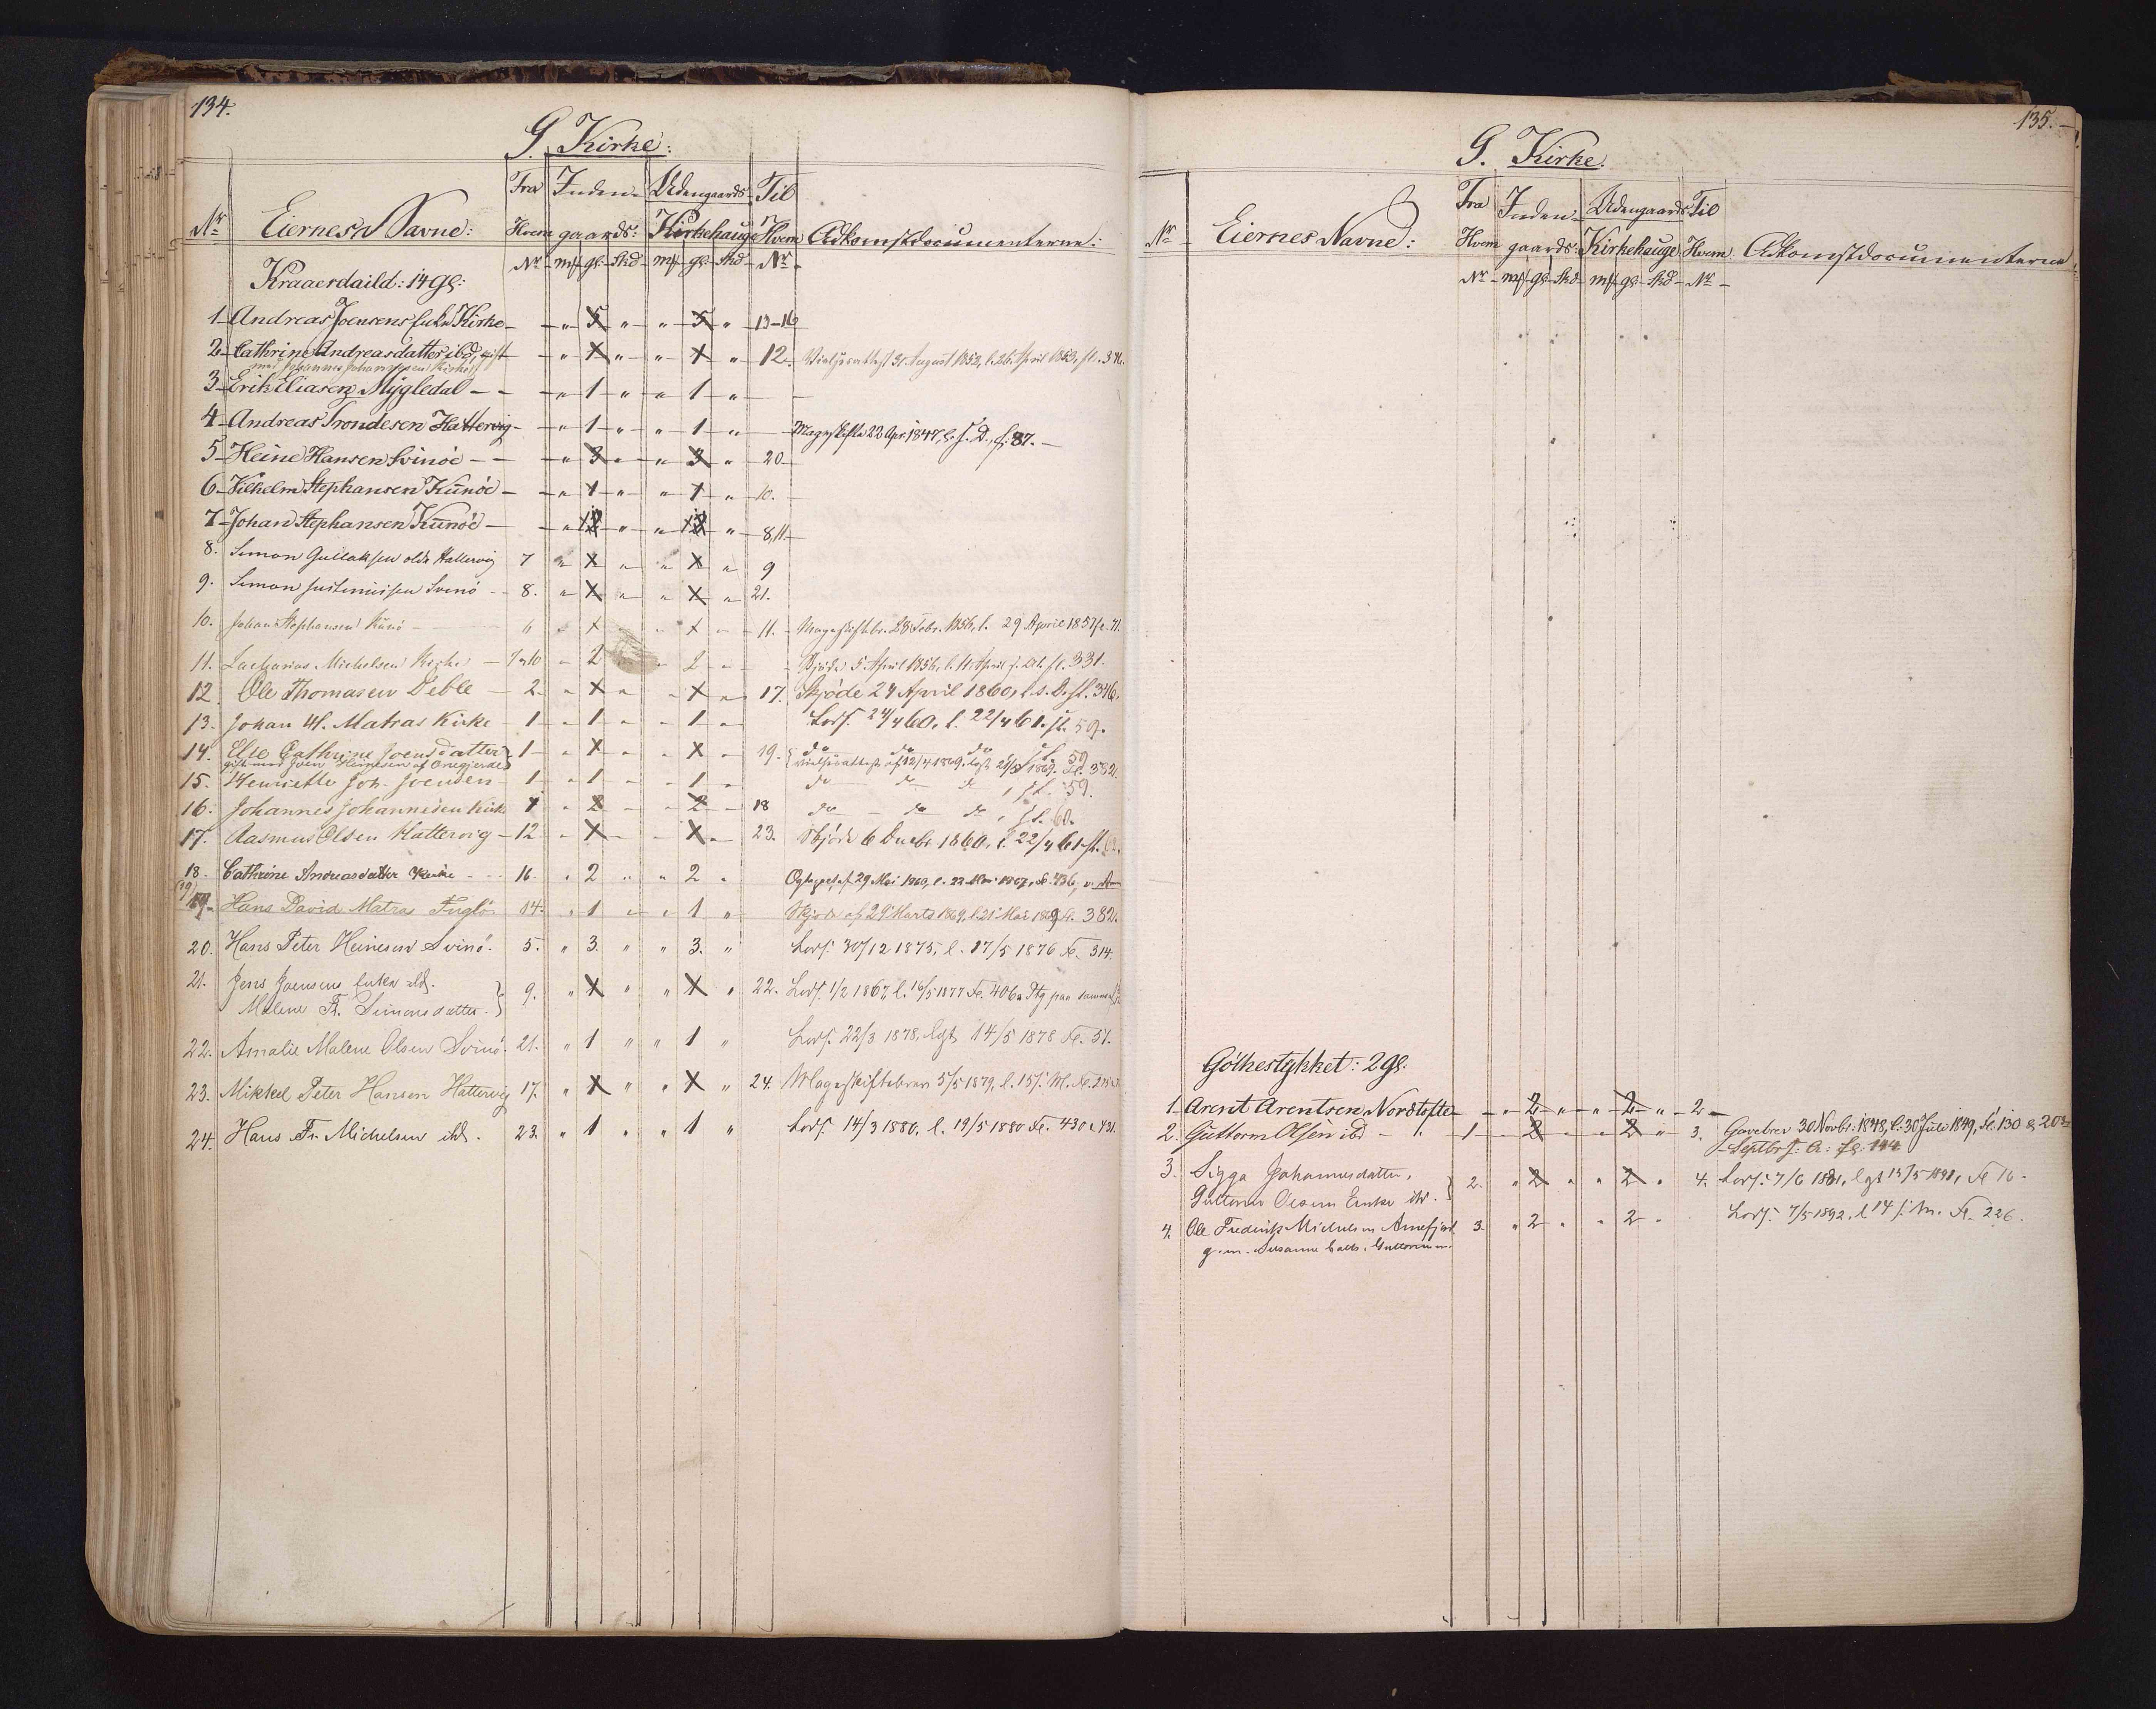 134.
G. Kirke:
Nr Eiernes Navne: Fra Hvem Nr Inden-gaards: mk gl: Skd Udengaards Kirkehauge mk gl: Skd Til Hvem Nr Adkomstdocumenterne:
Kraaerdaild: 14 gl:
1 Andreas Joensens Kirke " 5 " " 5 " 13-16
2 Cathrine Andreasdatter ibd, gift " 1 " " 1 " 12. Vielsesattest 31 August 1852, l. 26 April 1853, fl.
med Johannes Johannesen Kirke
3 Erik Eliasen Mygledal " 1 " " 1 "
4 Andreas Trondesen Hattervig " 1 " " 1 " Mageskifte 22 Apr. 1847, l. s. D., f. 87.
5 Heine Hansen Svinöe " 3 " " 3 " 20
6 Vilhelm Stephansen Kunöe " 1 " " 1 " 10.
7 Johan Stephansen Kunöe " " " " 8,11.
8. Simon Gullaksen Hattervig 7 " 1 " " 1 " 9
9. Simon Svinö 8. " 1 " " 1 " 21.
10. Johan Stephansen Kunö 6 " 1 " " 1 " 11. Mageskiftebr. 28 Febr. 1856, l. 29 April 1857 fl. 71.
11. Zacharias Michelsen Kirke 7 & 10 " 2 " " 2 " Skjöde 5 April 1856, l. 11 April fl. 331.
12. Ole Thomasen Deble 2. " 1 " " 1 " 17. Skjöde 24 April 1860, l. s. D. fl. 346.
13. Johan M. Matras Kirke 1 " 1 " " 1 " Lodf. 24/4 60, l. 22/4 61. fl. 59.
14. Else Cathrine Joensdatter 1 " 1 " " 1 " 19. do do do fl. 59
gift med Joen Heinesen af Vielsesattest af 12/4 1869. 1869. fl. 382.
15. Henriette Joh. Joensen 1 " 1 " " 1 " do do do, fl. 59.
16. Johannes Johannesen Kirke 1 " 2 " " 2 " 18 do do do, fl. 60.
17. Rasmus Olsen Hattervig 12 " 1 " " 1 " 23. Skjöde 6 Decbr. 1860, l. 22/4 61. fl.
18. Cathrine Andreasdatter Kirke 16. " 2 " " 2 " 29 Mai
19. Hans David Matras Fuglö 14 " 1 " " 1 " Skjöde af 29 Marts 1869, l. 21 Mai 1869 fl. 382.
20. Hans Peter Heinesen Svinö. 5. " 3. " " 3. " Lodf. 30/12 1875, l. 17/5 1876 Fl. 314.
21. Jens Joensens Enke ibd.
Malene Fr. Simonsdatter. } 9. " 1 " " 1 " 22. Lodf. 1/2 1867, l. 16/5 1877 Fl. 406 Ptg paa samme
22. Amalie Malene Olsen Svinö. 21. " 1 " " 1 " Lodf. 22/3 1878, lgt 14/5 1878 Fl. 51.
23. Mikkel Peter Hansen Hattervig 17. " 1 " " 1 " 24. Mageskiftebrev 5/5 1879, l. 15/. M. Fl.
24. Hans Fr. Michelsen ibd. 23. " 1 " " 1 " Lodf. 14/3 1880, l. 19/5 1880 Fl. 430 & 431.
135.
G. Kirke.
Nr Eiernes Navne: Fra Hvem Nr Inden-gaards: mk gl: Skd Udengaards Kirkehauge mk gl: Skd Til Hvem Nr Adkomstdocumenterne:
Gölhestykket: 2 gl:
1 Arent Arentsen Nordtofte " 2 " " 2 " 2
2. Guttorm Olsen ibd 1 " 2 " " 2 " 3. Gavebrev 30 Novbr: 1848, l: 30 Juli 1849, Fl: 130 & 20de
Septbr s: A: fl: 144
3. Sigga Johannesdatter,
Guttorm Olsens Enke ibd. } 2. " 2 " " 2 " 4. Lodf. 7/6 1881, Fl 76.
4. Ole Frederik Michelsen Arnefjord. 3. " 2 " " 2 " Lodf. 7/5 1892, l 14 s. M. Fl. 226.
g. m. Susanne Cath. Guttormsen.